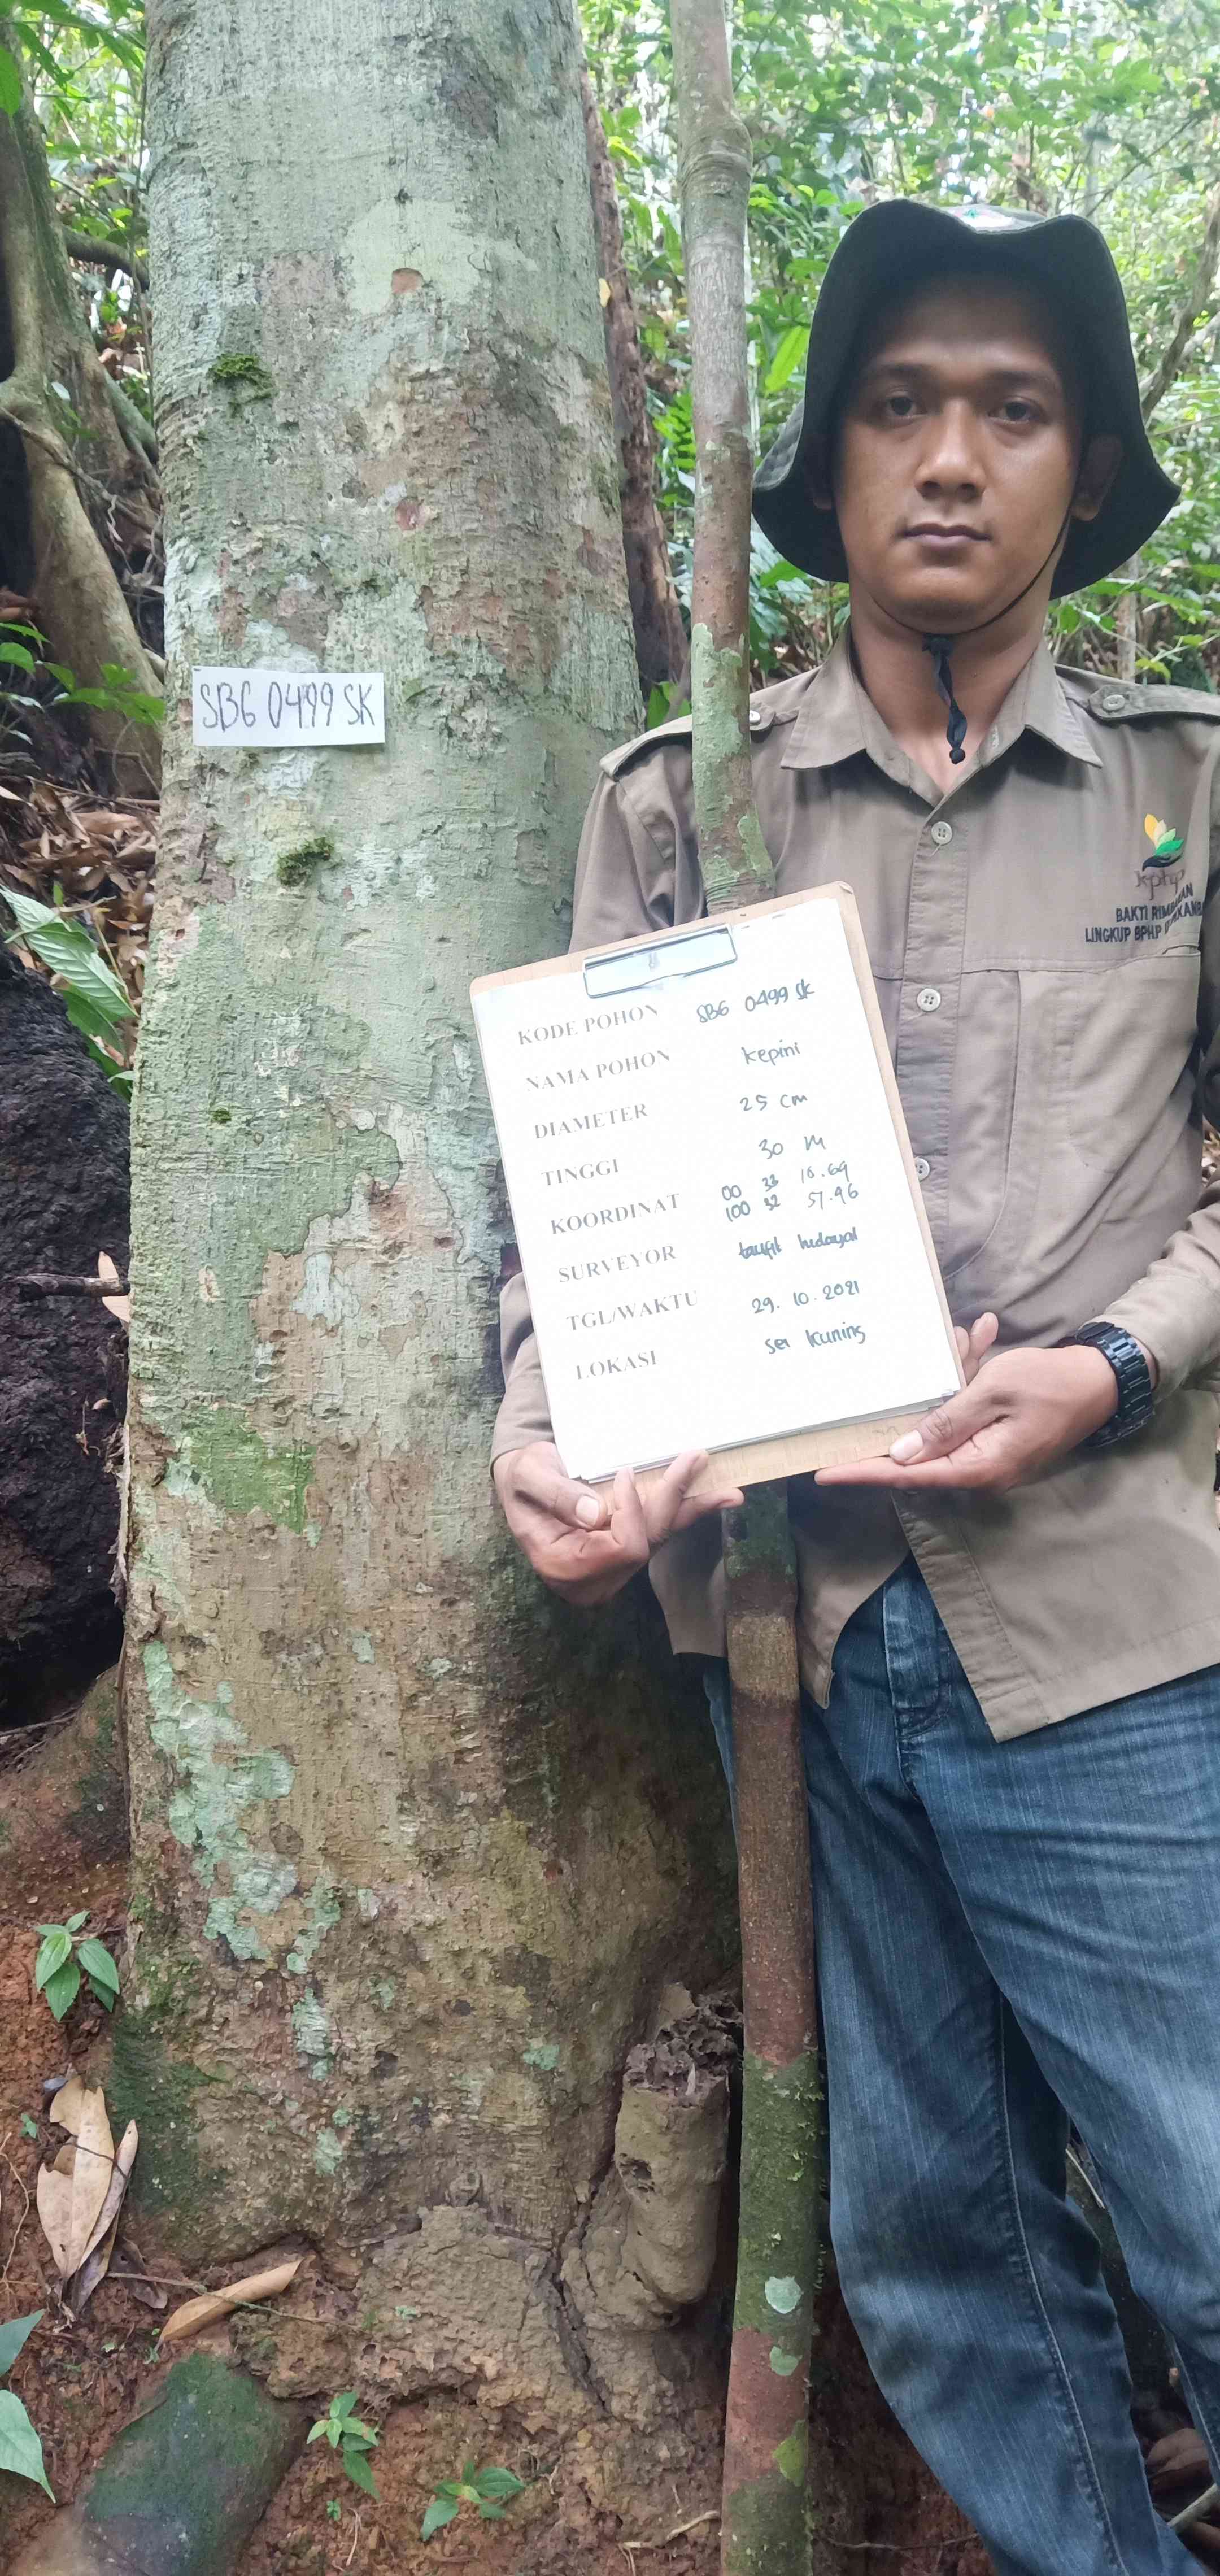 SBG 0499 SK
kphp
BAKTI RIMBAWAN
LINGKUP BPHP
KODE POHON SBG 0499 SK
NAMA POHON kepini
DIAMETER 25 cm
TINGGI 30 M
KOORDINAT 00 33 16.69
100 32 57.96
SURVEYOR taufik hidayat
TGL/WAKTU 29.10.2021
LOKASI sei kuning